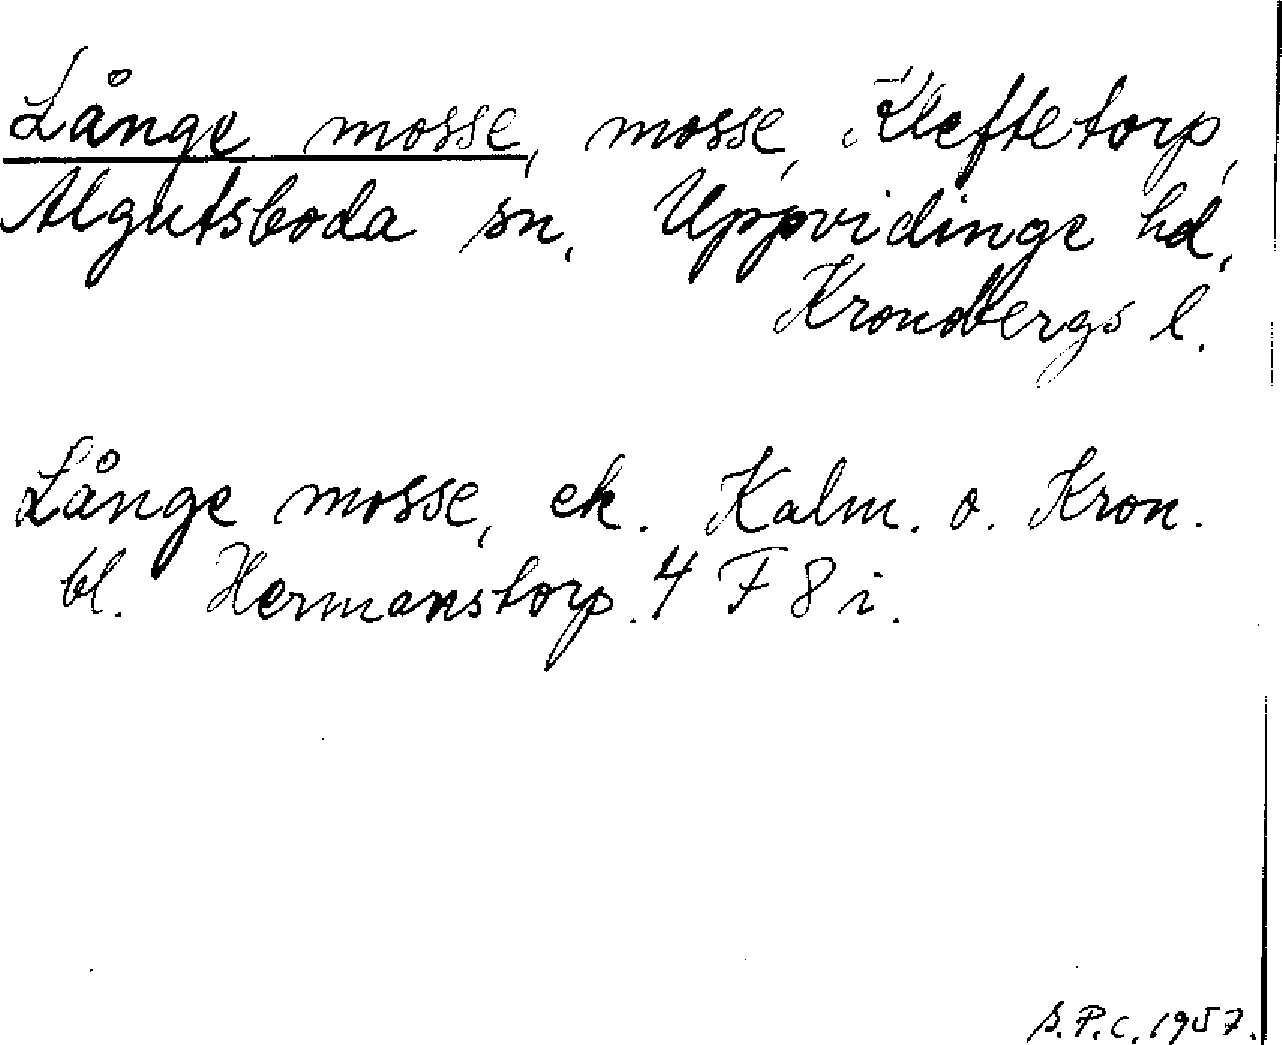 Långe mosse, mosse, Kleftetorp,
Algutsboda sn, Uppvidinge hd,
Kronobergs l.
Långe mosse, ek. Kalm. o. Kron.
bl. Hermanstorp. 4 F 8 i.
S.P.C. 1957.